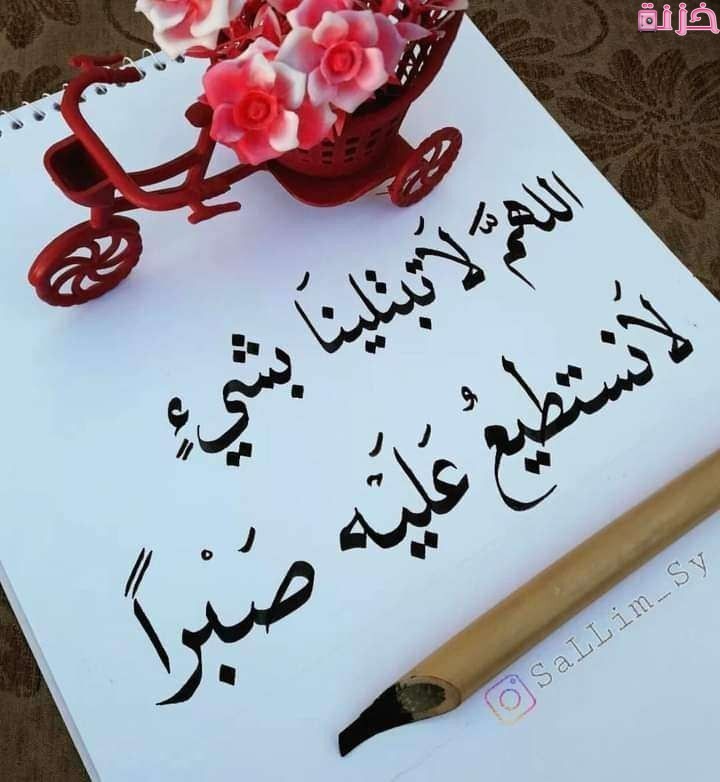 خزنة
اللهمَّ لَا تَبتلينَا بشيءٍ
لَا نَستطيعُ عَلَيْه صَبْراً
SaLLim_Sy